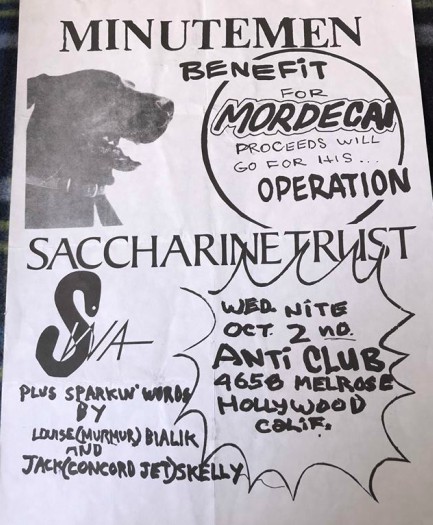 MINUTEMEN
BENEFiT
FOR
MORDECAI
PROCEEDS WILL
GO FOR HIS...
OPERATION
SACCHARINE TRUST
SWA
WED. NiTE
OCT. 2 ND.
ANTi CLUB
4658 MELROSE
HOLLYWOOD
CALiF.
PLUS SPARKIN' WORDS
BY
LOUISE (MURMUR) BIALIK
AND
JACK (CONCORD JET) SKELLY